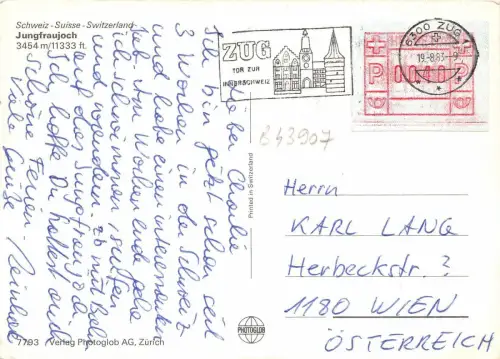 Schweiz - Suisse - Switzerland
Jungfraujoch
3454 m/11333 ft.
ZUG
TOR ZUR
INNERSCHWEIZ
6300 ZUG 1
19.-8.83.-9
P 0040 P
843907
Lieber Charlie
Ich bin jetzt schon seit
3 Wochen in der Schweiz
und habe einen interessanten
Job. Am Wochenende gehe
ich schwimmen, surfen
und wandern. zb mit Bahn
auf das Jungfraujoch.
Ich hoffe Du hattest auch
schöne Ferien.
Viele Grüße Reinhold
Printed in Switzerland
Herrn
KARL LANG
Herbeckstr. ?
1180 WIEN
ÖSTERREICH
PHOTOGLOB
7793 Verlag Photoglob AG, Zürich